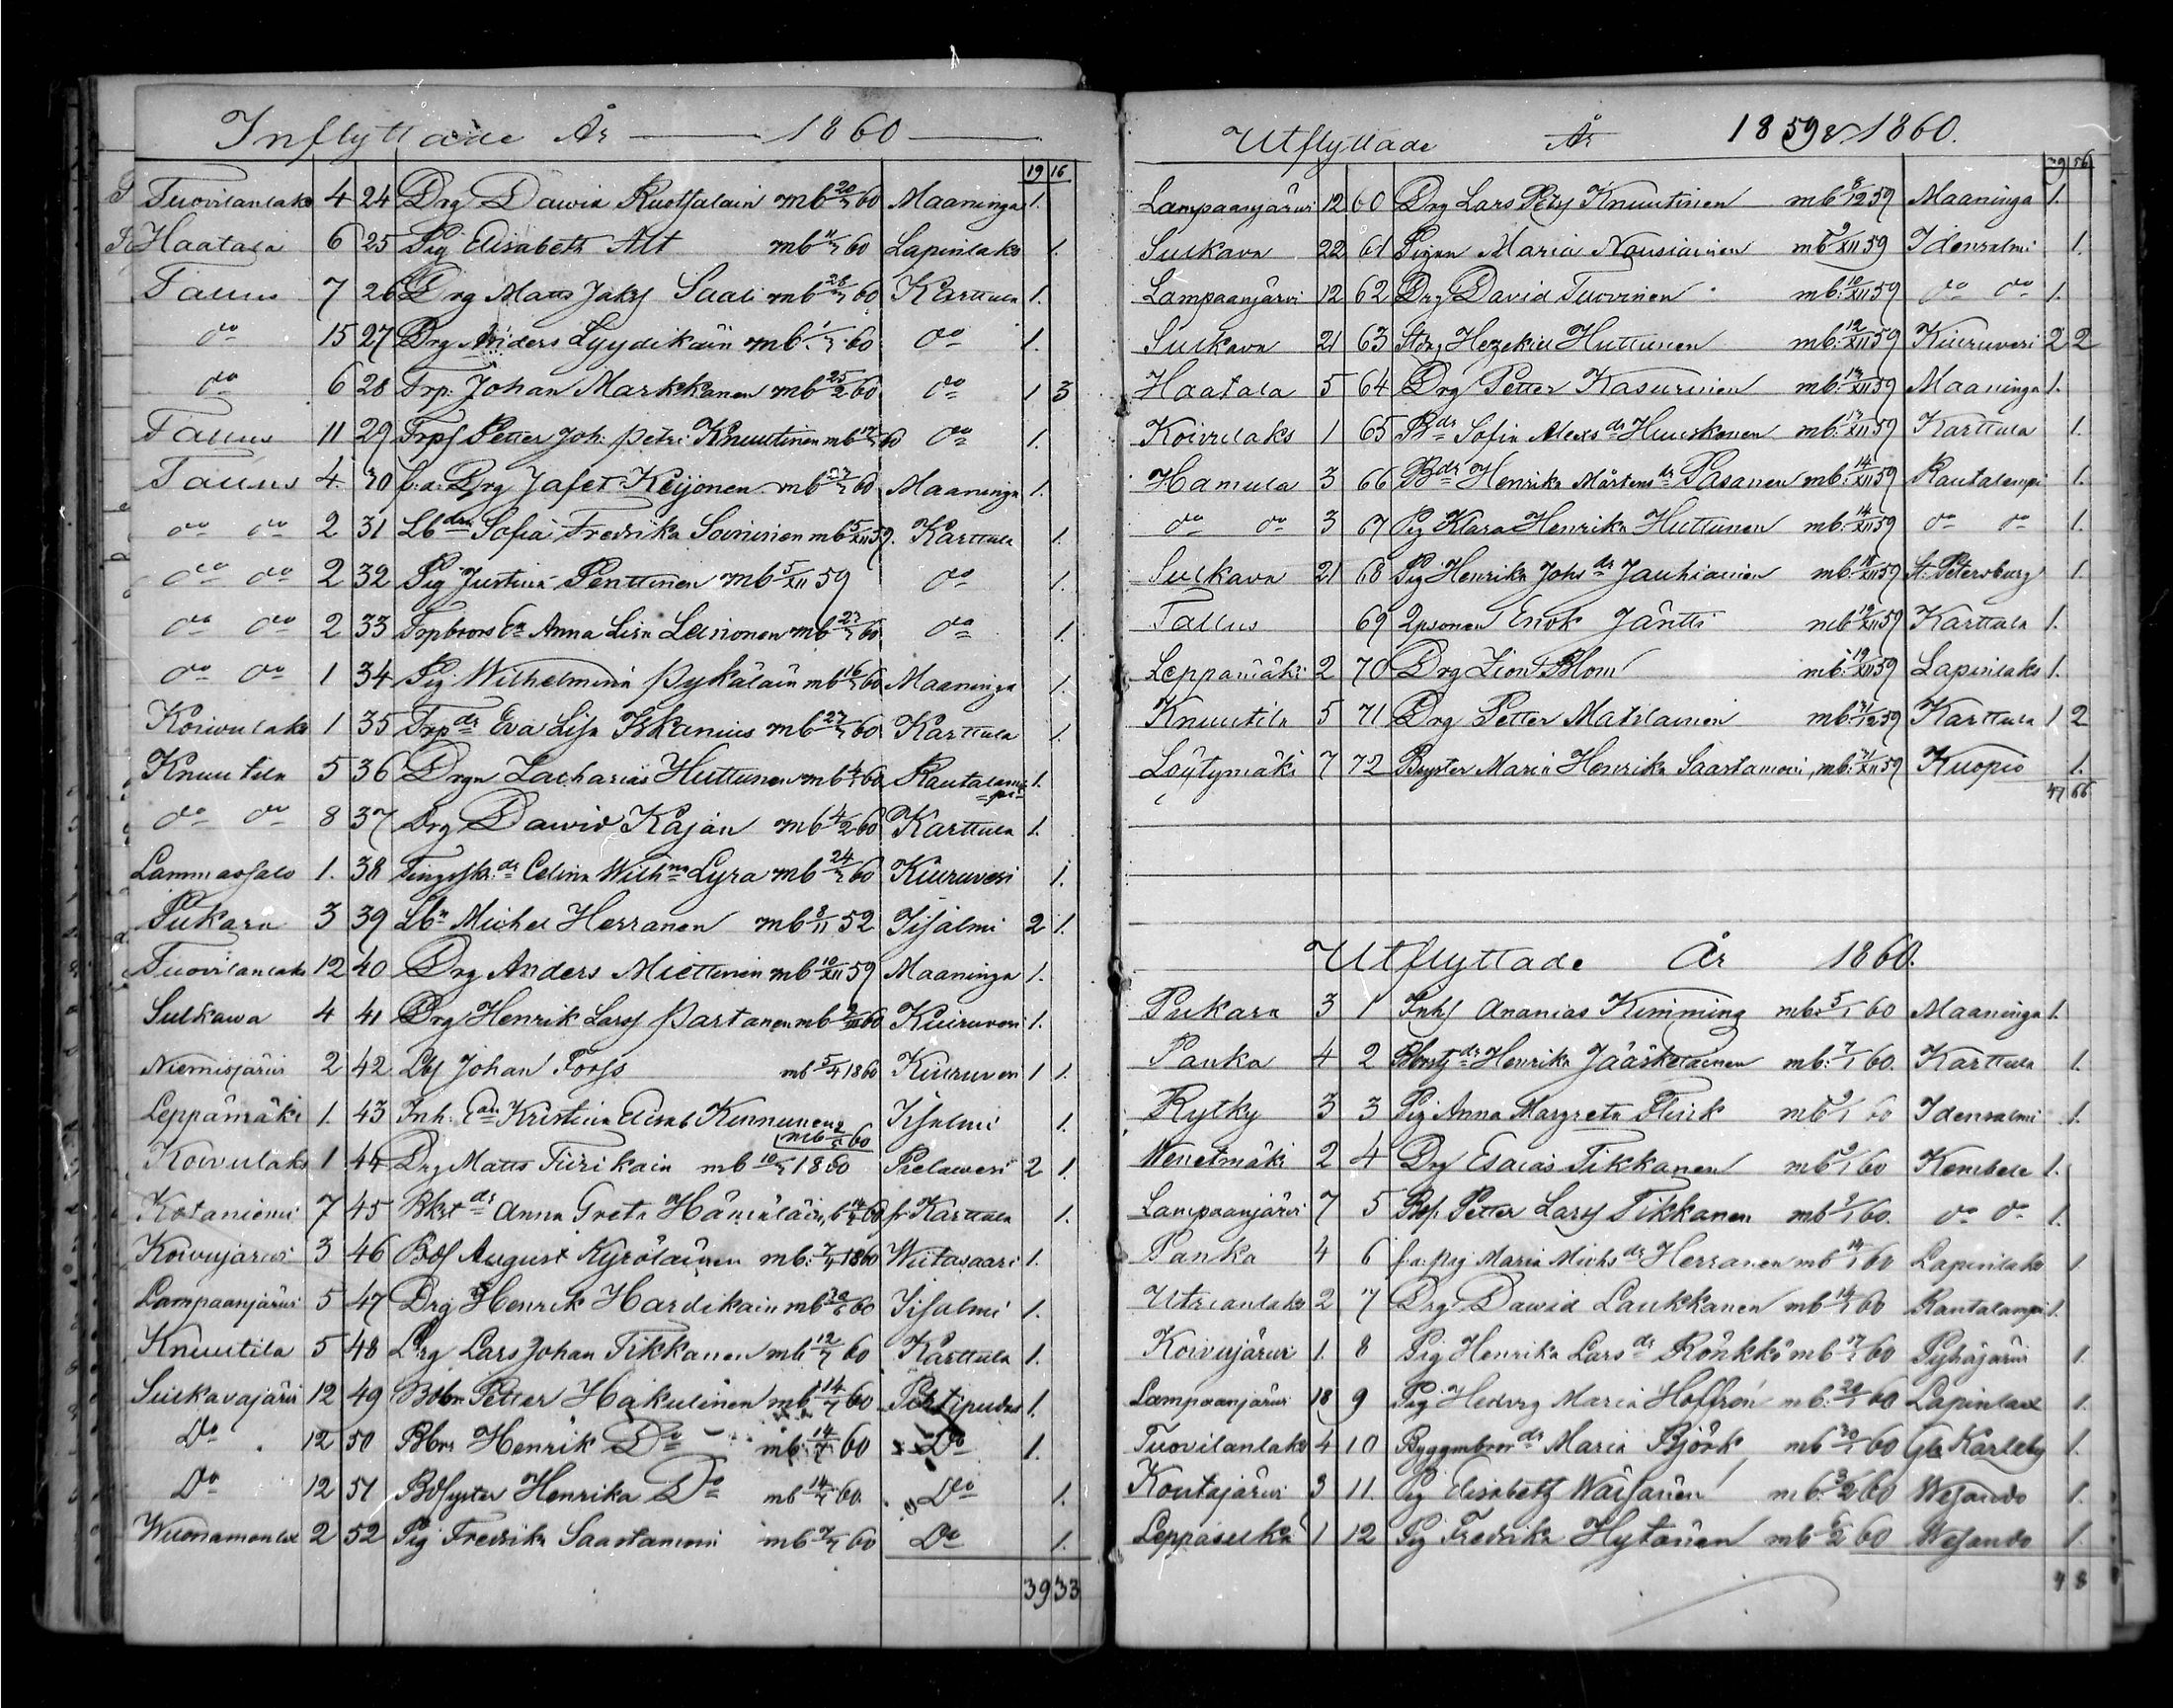 Inflyttade År 1860
19 16
Tuovilanlaks 4 24 Drg Dawid Ruotsalain mb 20/3 60 Maaninga 1.
Haatala 6 25 Pig Elisabeth Alt mb 11/3 60 Lapinlaks 1.
Tallus 7 26 Drg Matts Jaks Saali mb 28/3 60 Karttula 1.
do 15 27 Drg Anders Lyydikäin mb 1/3 60 do 1.
do 6 28 Trp. Johan Markkanen mb 25/2 60 do 1 3
Tallus 11 29 Trps Petter Joh. Petri Knuutinen mb 60 do 1.
Tallus 4. 30 f.a. Drg Jafet Keijonen mb 23/3 60 Maaninga 1.
do do 2 31 Lbdr Sofia Fredrika Soininen mb 5/XII 59. Karttula 1.
do do 2 32 Pig Justina Penttinen mb 5/XII 59 do 1.
do do 2 33 Anna Lisa Leinonen mb 23/3 60 do 1.
do do 1 34 Pig Wilhelmina Pykäläin mb 16/3 60 Maaninga 1.
Koivulaks 1 35 Trpdr Eva Lisa Iskanius mb 23/3 60 Karttula 1.
Knuutila 5 36 Drgn Zacharias Huttunen mb 60 Rautalampi 1.
do do 8 37 Drg Dawid Kajan mb 4/2 60 Karttula 1.
Lammassalo 1. 38 dr Celina Wilhna Lyra mb 24/3 60 Kiuruvesi 1.
Pukara 3 39 Lbn Michel Herranen mb 8/11 52 Iisalmi 2 1.
Tuovilanlaks 12 40 Drg Anders Miettinen mb 10/XII 59 Maaninga 1.
Sulkawa 4 41 Drg Henrik Larss Partanen mb 60 Kiuruvesi 1.
Niemisjärvi 2 42 Johan Forss mb 5/4 1860 Kiuruvesi 1 1.
Leppämäki 1. 43 Inh. Kristina Elisab Kinnunen mb 60 Iisalmi 1.
Koivulaks 1 44 Drg Matts Tiirikain mb 10/3 1860 Pielavesi 2 1.
Kotaniemi 7 45 dr Anna Greta Hämäläin 60 fr Karttula 1.
Koivujärvi 3 46 Bds August Kyröläinen mb. 7/4 1860 Wiitasaari 1.
Lampaanjärvi 5 47 Drg Henrik Hardikain mb 60 Iisalmi 1.
Knuutila 5 48 Drg Lars Johan Tikkanen mb. 12/7 60 Karttula 1.
Sulkavajärvi 12 49 Petter Hakulinen mb 14/7 60 Pihtipudas 1.
Do 12 50 Henrik Do mb 14/7 60 Do 1.
Do 12 51 Henrika Do mb 14/7 60 Do 1.
Wuonamonlax 2 52 Pig Fredrika Saastamoin mb 60 Do 1.
39 33
Utflyttade År 1859 & 1860.
39 56
Lampaanjärvi 12 60 Drg Lars Petss Knuutinen mb 8/12 59 Maaninga 1.
Sulkava 22 61 Pigan Maria Nousiainen mb 9/XII 59 Idensalmi 1.
Lampaanjärvi 12 62 Drg David Tuovinen mb. 10/XII 59 do do 1.
Sulkava 21 63 Hezekiel Huttunen mb. 12/XII 59 Kiuruvesi 2 2
Haatala 5 64 Drg Petter Kasurinen mb. 13/XII 59 Maaninga 1.
Koivulaks 1 65 Bdr Sofia Alexsdr Huuskonen mb. 13/XII 59 Karttula 1.
Hamula 3 66 Bdr Henrika Mårtensdr Pasanen mb. 14/XII 59 Rautalampi 1.
do do 3 67 Pig Klara Henrika Huttunen mb. 14/XII 59 do do 1.
Sulkava 21 68 Pig Henrika Johsdr Jauhiainen mb. 59 St. Petersburg 1.
Tallus 69 Enok Jäntti mb 19/XII 59 Karttula 1.
Leppämäki 2 70 Drg Zion Blom mb. 19/XII 59 Lapinlaks 1.
Knuutila 5 71 Drg Petter Matilainen mb. 21/12 59 Karttula 1 2
Löytymäki 7 72 Maria Henrika Saastamoin, mb. 59 Kuopio 1.
47 66
Utflyttade År 1860.
Pukara 3 1 Inhs Ananias Kimming mb. 5/1 60 Maaninga 1.
Panka 4 2 dr Henrika Jääskeläinen mb. 7/1 60. Karttula 1.
Rytky 3 3 Pig Anna Margreta Flink mb 9/1 60 Idensalmi 1.
Wenetmäki 2 4 Drg Esaias Tikkanen mb 9/1 60 Kembele 1.
Lampaanjärvi 7 5 Petter Larss Tikkanen mb 9/1 60. do do 1.
Panka 4 6 f.a. pig Maria Michsdr Herranen mb 14/1 60 Lapinlaks 1
Utrianlaks 2 7 Drg Dawid Laukkanen mb 14/1 60 Rautalampi 1.
Koivujärvi 1. 8 Pig Henrika Larsdr Rönkkö mb 17/1 60 Pyhäjärvi 1.
Lampaanjärvi 18 9 Pig Hedvig Maria Hoffrén mb. 60 Lapinlax 1.
Tuovilanlaks 4 10 dr Maria Björk mb 30/1 60 Gla Karleby 1.
Koutajärvi 3 11. Pig Elisabeth Wäisänen mb. 3/2 60 Wesando 1.
Leppäselkä 1 12 Pig Fredrika Hytönen mb 6/2 60 Wesando 1.
4 8